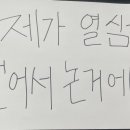 제가 열심
어서 논거에